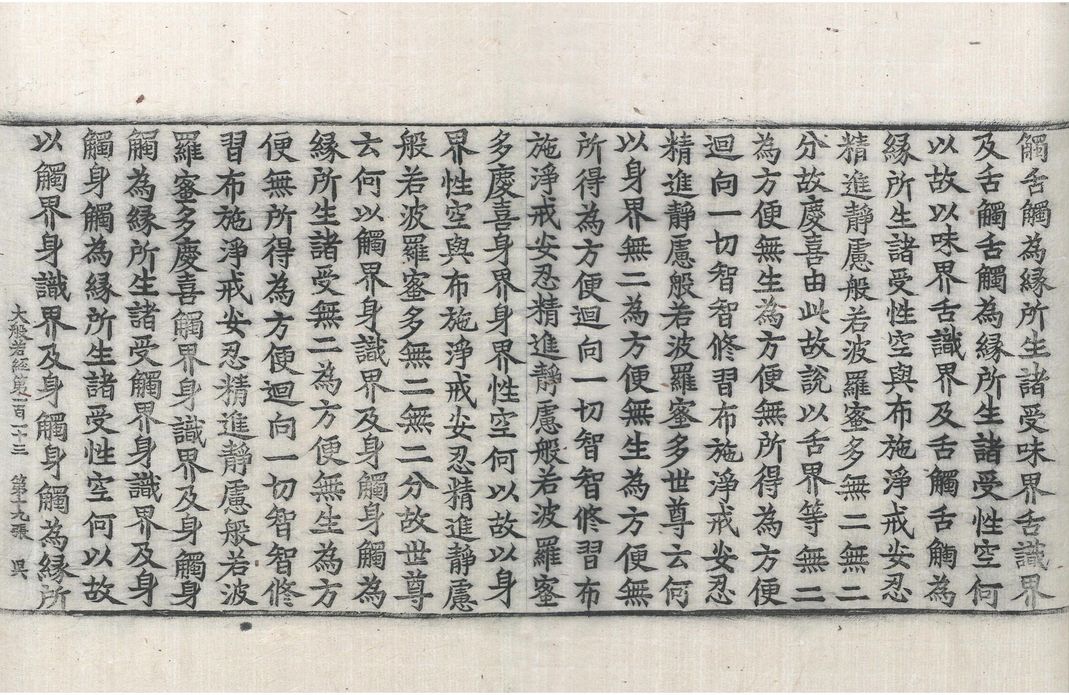 觸舌觸為緣所生諸受味界舌識界
及舌觸舌觸為緣所生諸受性空何
以故以味界舌識界及舌觸舌觸為
緣所生諸受性空與布施淨戒安忍
精進靜慮般若波羅蜜多無二無二
分故慶喜由此故說以舌界等無二
為方便無生為方便無所得為方便
迴向一切智智修習布施淨戒安忍
精進靜慮般若波羅蜜多世尊云何
以身界無二為方便無生為方便無
所得為方便迴向一切智智修習布
施淨戒安忍精進靜慮般若波羅蜜
多慶喜身界身界性空何以故以身
界性空與布施淨戒安忍精進靜慮
般若波羅蜜多無二無二分故世尊
云何以觸界身識界及身觸身觸為
緣所生諸受無二為方便無生為方
便無所得為方便迴向一切智智修
習布施淨戒安忍精進靜慮般若波
羅蜜多慶喜觸界身識界及身觸身
觸為緣所生諸受觸界身識界及身
觸身觸為緣所生諸受性空何以故
以觸界身識界及身觸身觸為緣所
大般若經第一百一十三 第十九張 吳